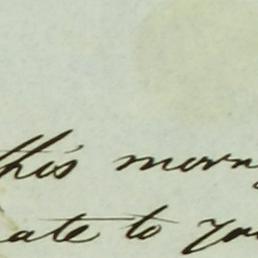 this morn
ate to you